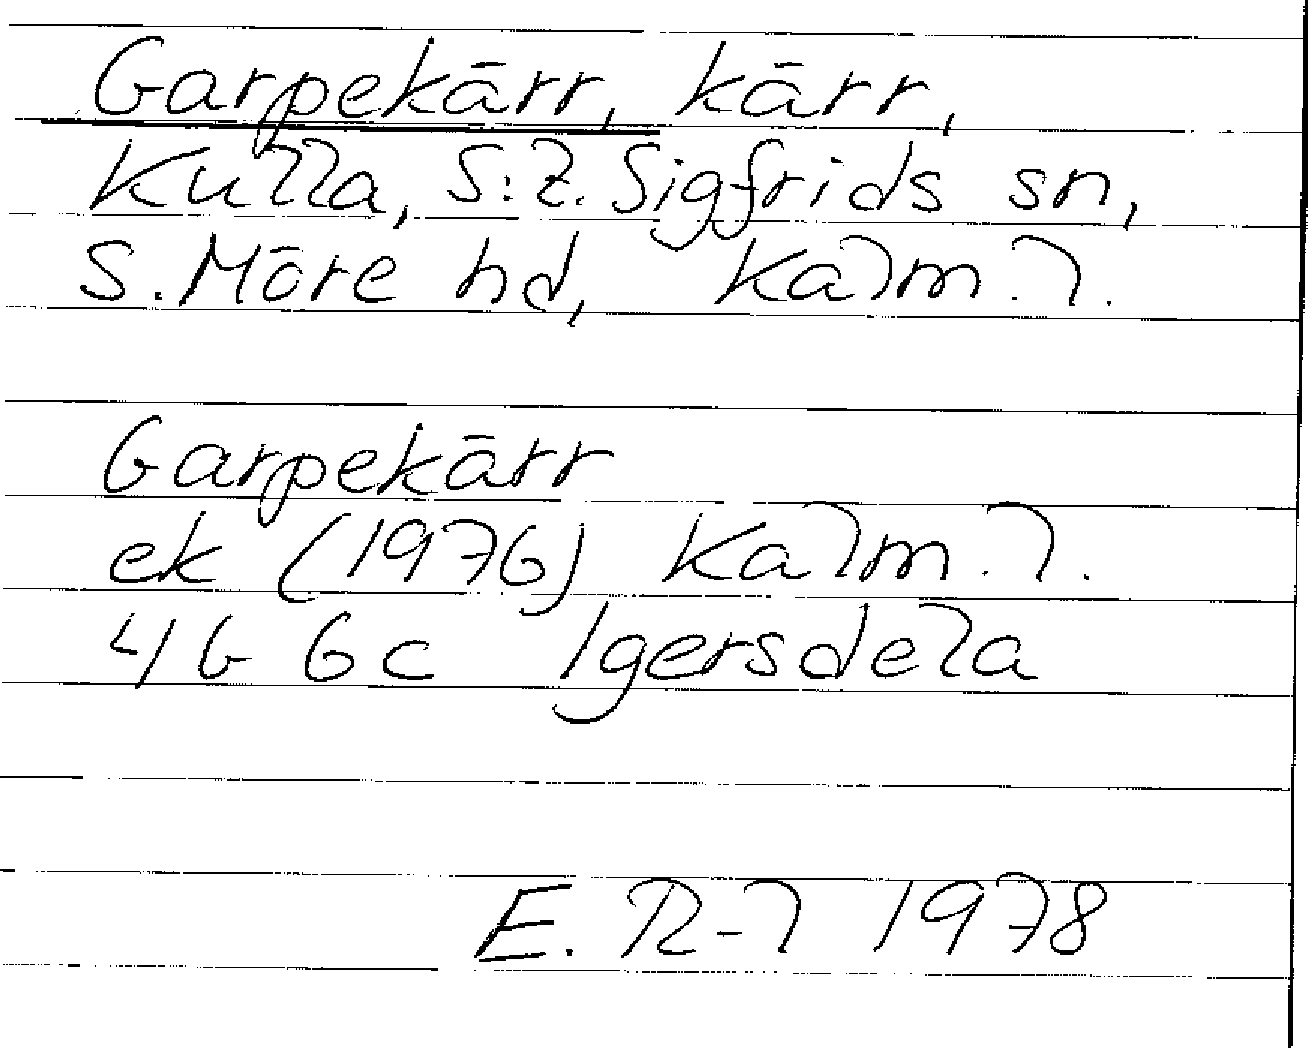 Garpekärr, kärr,
Kulla, S:t. Sigfrids sn,
S. Möre hd, Kalm. l.
Garpekärr
ek (1976) Kalm. l.
4G 6c Igersdela
E. R-l 1978